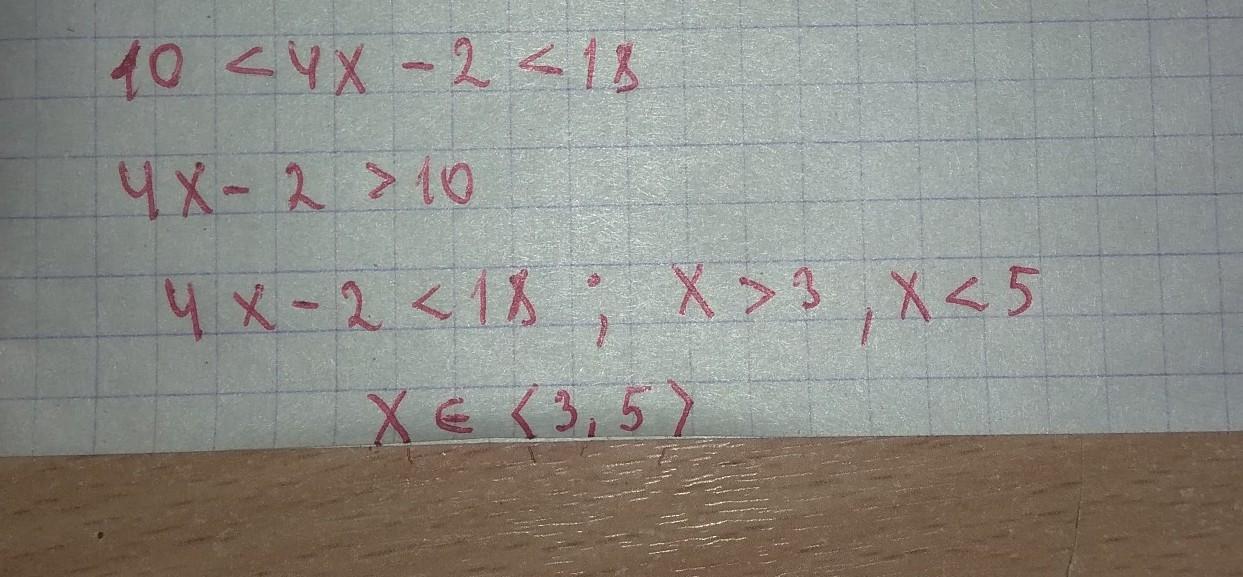 10 < 4x - 2 < 18
4x - 2 > 10
4x - 2 < 18 ; x > 3 , x < 5
x ∈ ⟨3, 5⟩